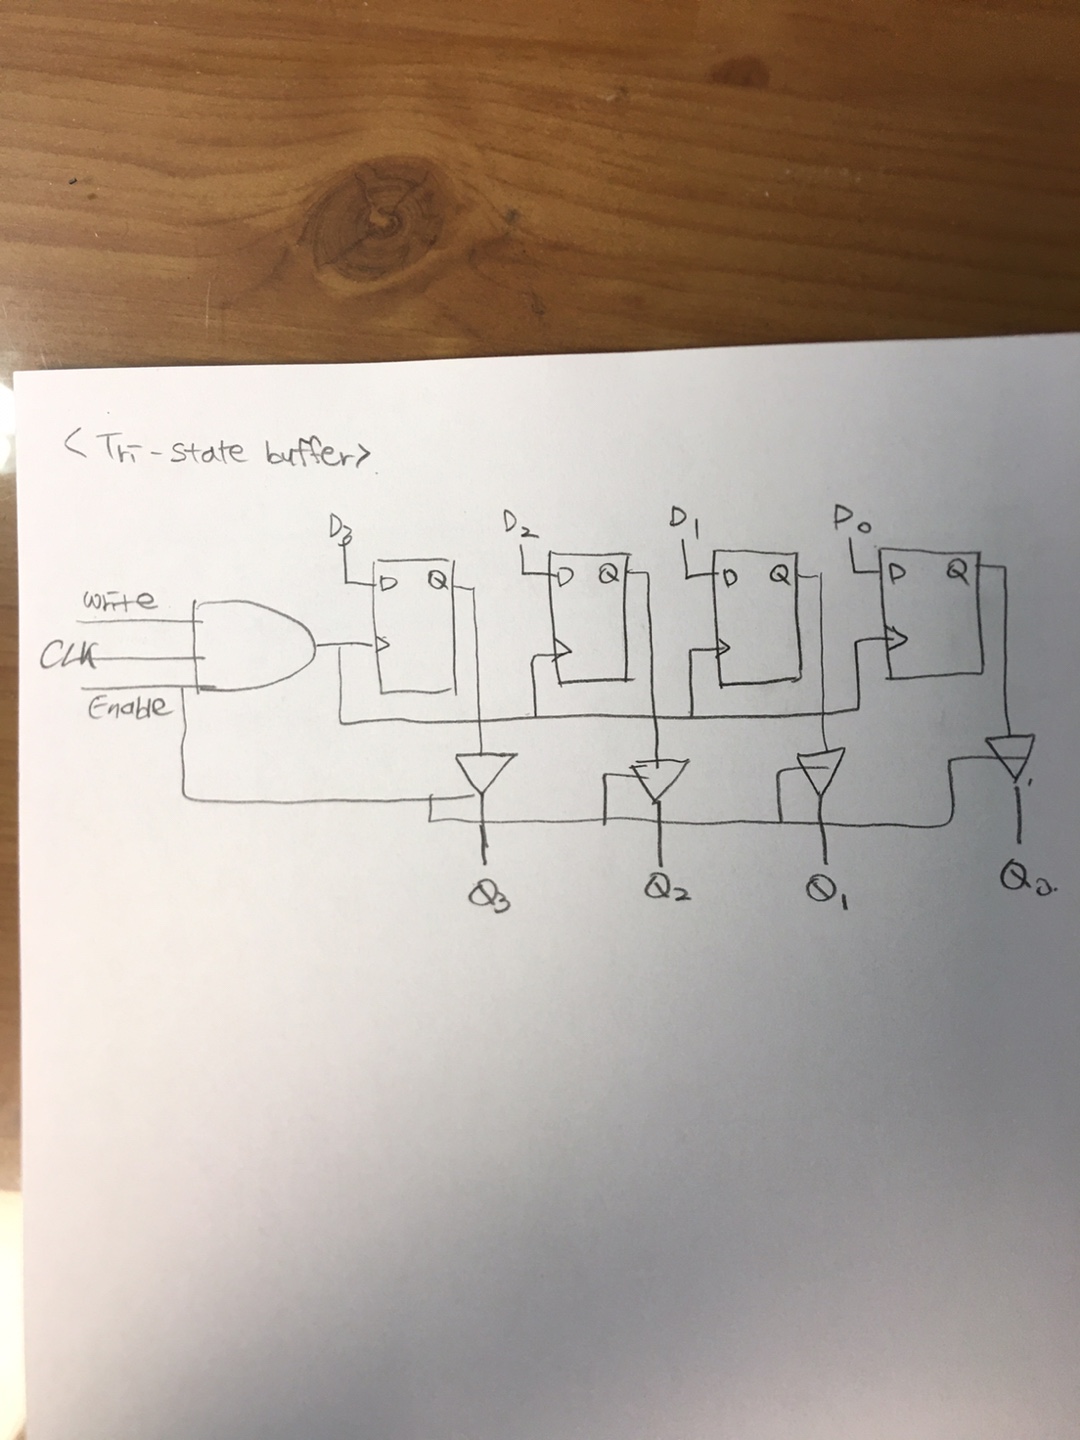 <Tri-state buffer>
D3 D2 D1 D0
D Q D Q D Q D Q
Write
CLK
Enable
Q3 Q2 Q1 Q0